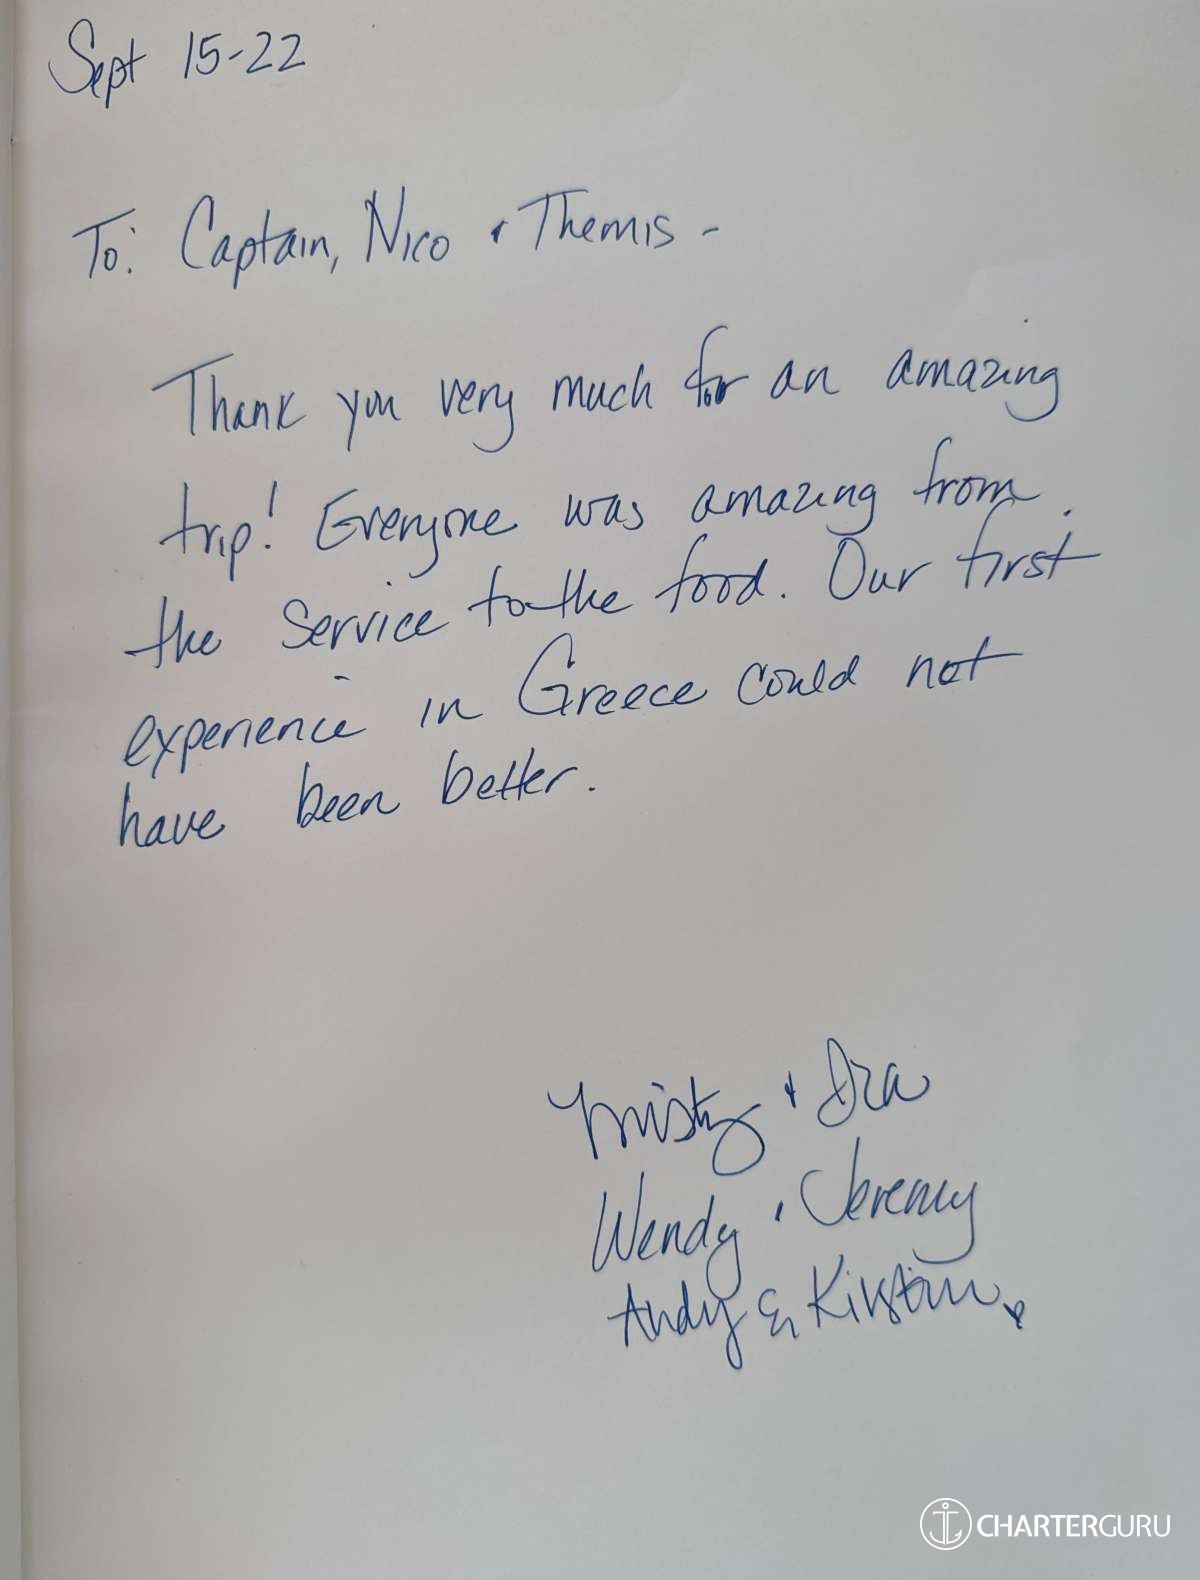 Sept 15-22
To: Captain, Nico + Themis -
Thank you very much for an amazing
trip! Everyone was amazing from
the service to the food. Our first
experience in Greece could not
have been better.
Misty + Ira
Wendy + Jeremy
Andy & Kirstin
CHARTERGURU